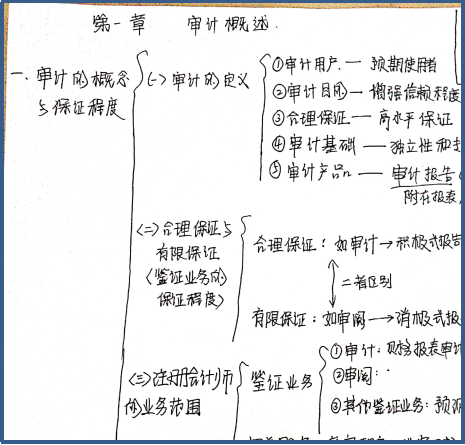 第一章 审计概述.
一、审计的概念与保证程度
(一)审计的定义
①审计用户 — 预期使用者
②审计目的 — 增强信赖程度
③合理保证 — 高水平保证
④审计基础 — 独立性和
⑤审计产品 — 审计报告
附在报表
(二)合理保证与
有限保证
(鉴证业务的
保证程度)
合理保证：如审计→积极式报告
二者区别
有限保证：如审阅→消极式报
(三)注册会计师
的业务范围
鉴证业务
①审计：财务报表审计
②审阅：
③其他鉴证业务：预测